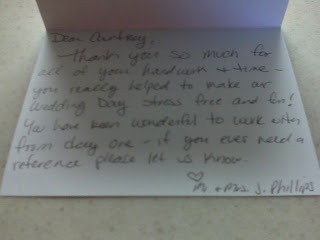 Dear Courtney,
Thank you so much for
all of your hardwork + time -
you really helped to make our
Wedding Day stress free and fun!
You have been wonderful to work with
from day one - if you ever need a
reference please let us know.
♡ Mr + Mrs. J. Phillips